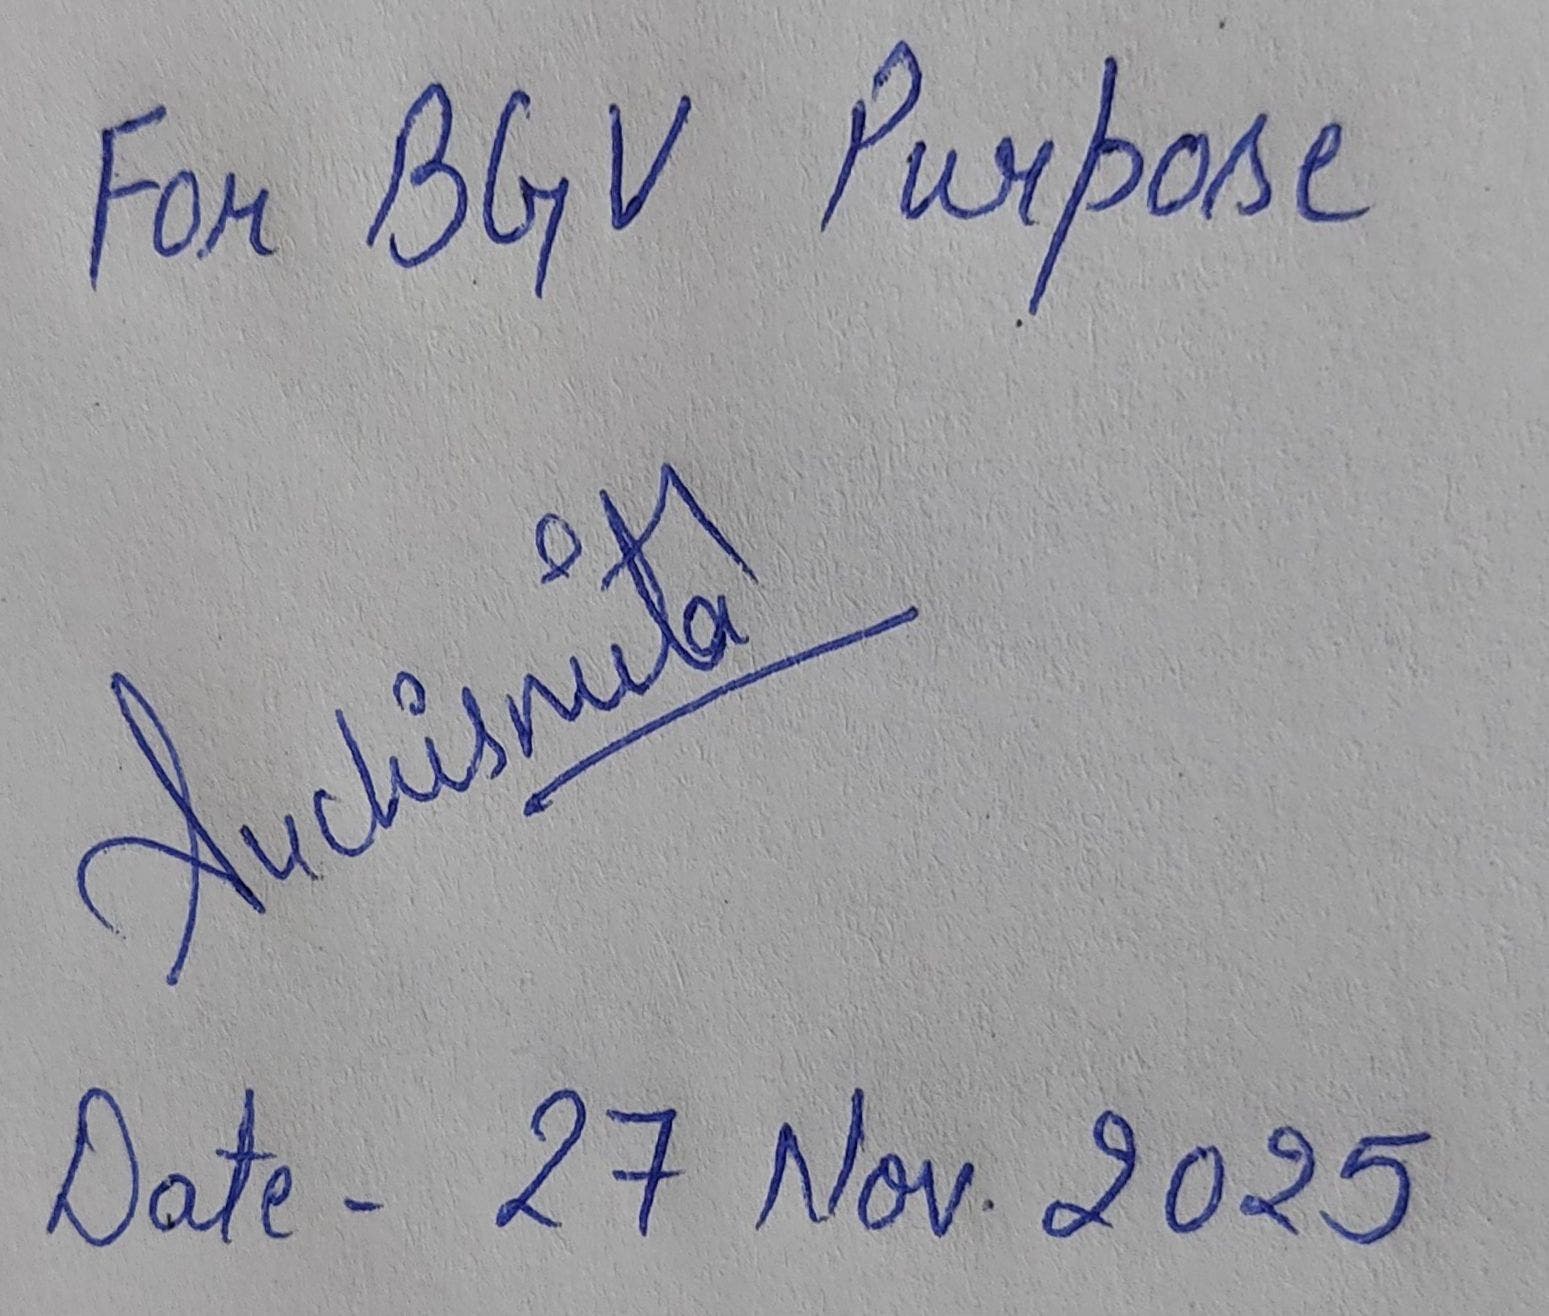 For BGV Purpose
Suchismita
Date - 27 Nov. 2025